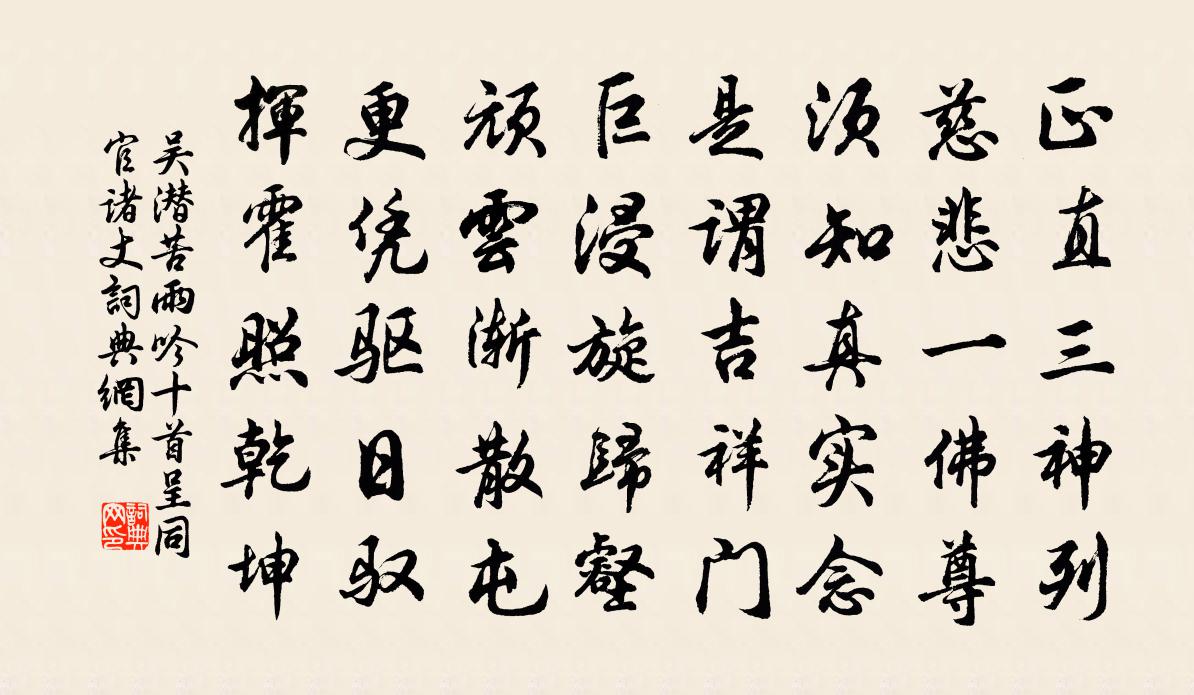 正直三神列
慈悲一佛尊
须知真实念
是谓吉祥门
巨浸旋歸壑
顽雲渐散屯
更凭驱日驭
揮霍照乾坤
吴潜苦雨吟十首呈同
官诸丈詞典網集
詞典
网印